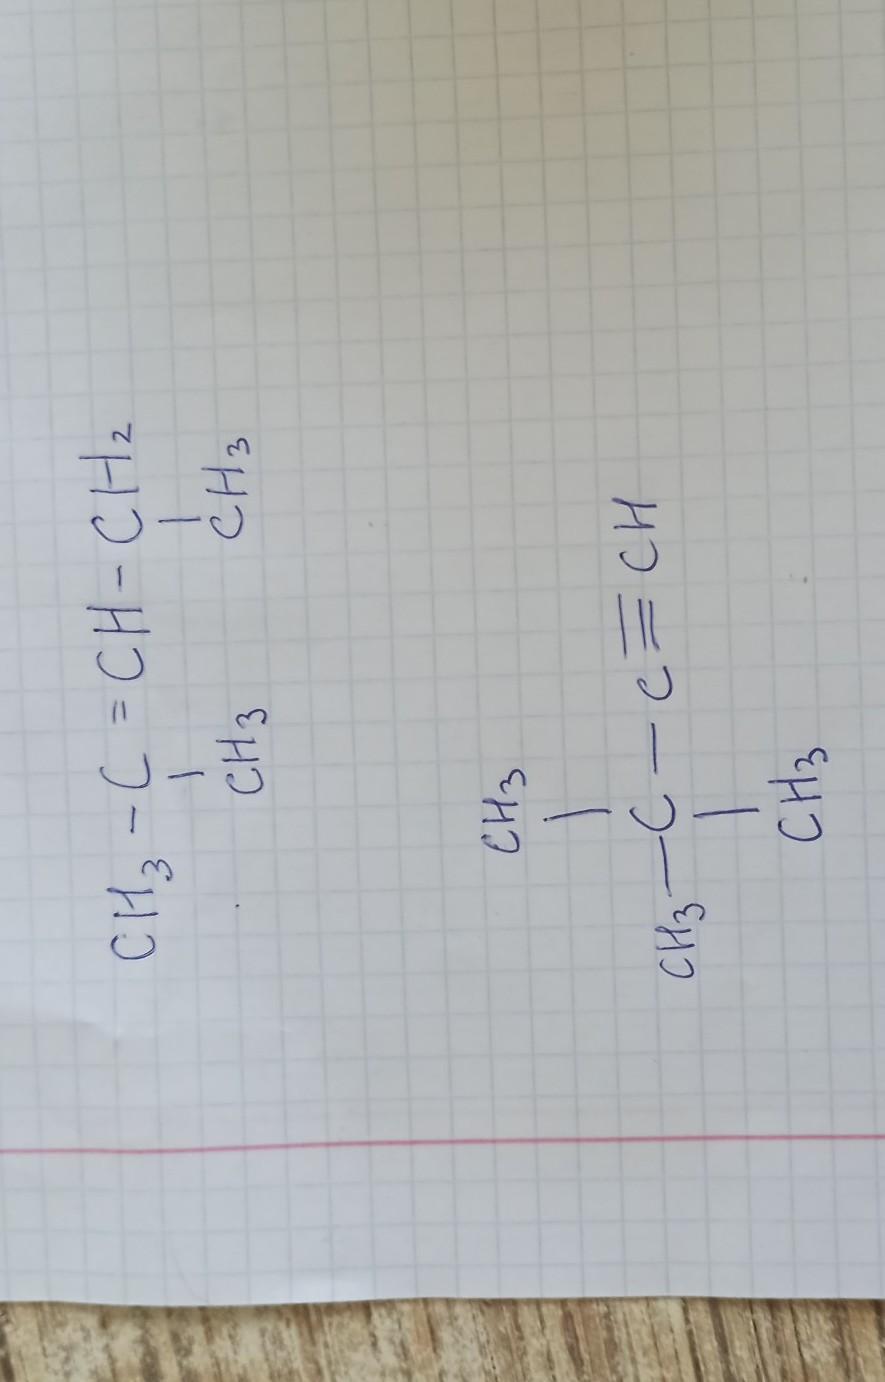 CH₃ - C = CH - CH₂
| |
CH₃ CH₃
CH₃
|
CH₃ — C — C ≡ CH
|
CH₃